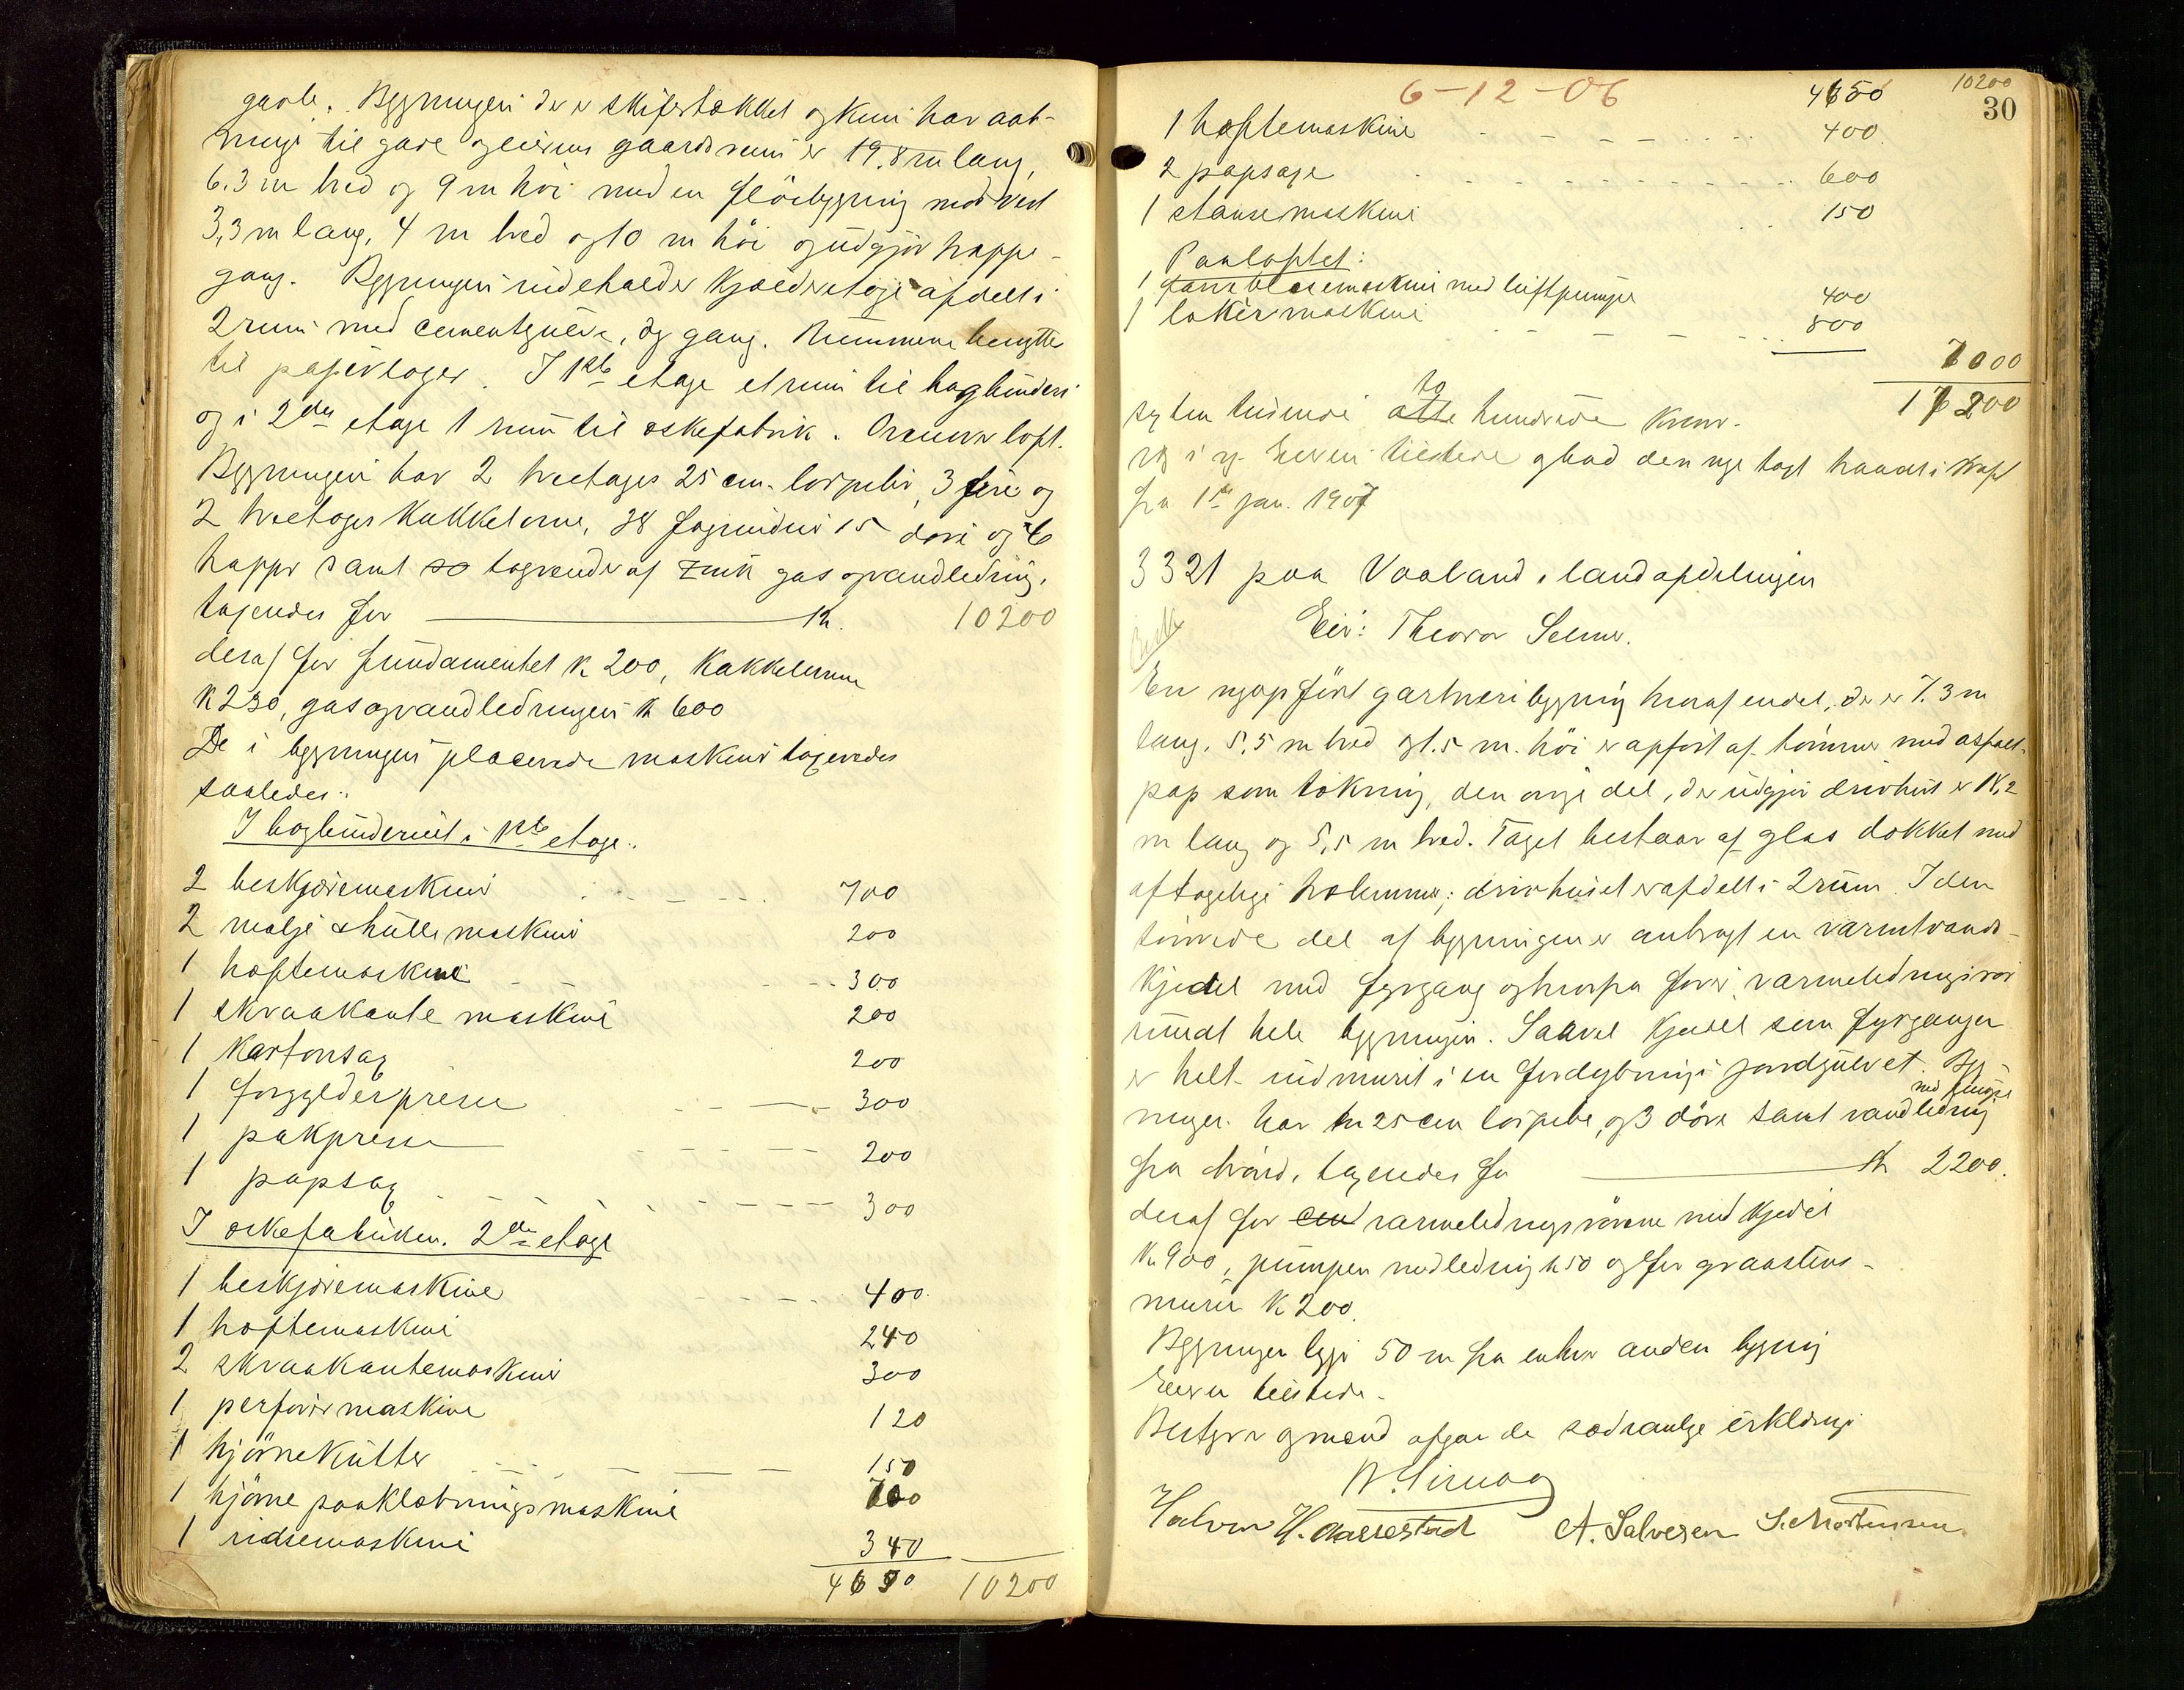 gavle. Bygningen der er skifertækket og kun har aab-
ninger til gade og eierens gaardsrum er 19.8 m lang,
6.3 m bred og 9 m høi med en fløibygning mod vest
3,3 m lang, 4 m bred og 10 m høi og udgjør trappe-
gang. Bygningen indeholder kjælderetage afdelt i
2 rum med cementgulve, og gang. Rummene benyttes
til papirlager. I 1ste etage et rum til bogbinderi
og i 2den etage 1 rum til æskefabrik. Ovenover loft.
Bygningen har 2 treetages 25 cm. lorpiber, 3 fire og
2 treetages kakkelovne, 38 fag vinduer 15 døre og 6
trapper samt 20 tagrender af zink gas og vandledning.
taxeredes for K. 10200
deraf for fundamentet K 200, kakkelovnene
K 230, gas og vandledningen K 600
De i bygningen placerede maskiner taxeredes
saaledes:
I bogbinderiet i 1ste etage:
2 beskjæremaskiner 700
2 malje & hulle maskiner 200
1 heftemaskine 300
1 skraakante maskine 200
1 Kartonsax 200
1 forgylderpresse 300
1 pakpresse 200
1 papsax 300
I æskefabriken. 2den etage
1 beskjæremaskine 400.
1 heftemaskine 240
2 skraakantemaskiner 300
1 perforermaskine 120
1 hjørnekutter 150
1 hjørne paaklæbningsmaskine 700
1 ridsemaskine 340
4650 10200
6-12-06 4650 10200
30
1 heftemaskine 400.
2 papsaxe 600
1 stansemaskine 150
Paa loftet:
1 maskine med luftpumpe 400
1 lakermaskine 800
7000
17200
to
sytten tusinde otte hundrede Kroner.
Eieren tilstede og bad den nye taxt traadt i kraft
fra 1ste jan. 1907
3321 paa Vaaland, landafdelingen
Eier: Theodor Selmer.
En nyopført gartneribygning hvoraf en del, der er 7.3 m
lang, 5,5 m bred og 1.5 m. høi er opført af tømmer med asfalt-
pap som tækning, den øvrige del, der udgjør drivhus er 18,2
m lang og 5,5 m bred. Taget bestaar af glas dækket med
aftagelige trælemmer; drivhuset er afdelt i 2 rum. I den
tømrede del af bygningen er anbragt en varmtvands-
kjedel med fyrgang og hvorfra fører varmeledningsrør
rundt hele bygningen. Saavel kjedel som fyrgangen
er helt indmuret i en fordybning i jordgulvet. Byg-
med pumpe
ningen har en 25 cm lorpibe, og 3 døre samt vandledning
fra brønd, taxeredes for K 2200.
deraf for cen varmeledningsrørene med kjedel
K. 900, pumpen med ledning K 50 og for graastens-
muren K 200.
Bygningen ligger 50 m fra enhver anden bygning
Eieren tilstede.
Bestyrer og mænd afgav de sædvanlige erklæringer
Halvor H. Aarrestad A. Salvesen S. Mortensen.